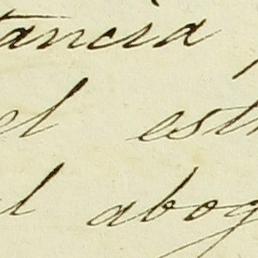 tancia
el est
l abog